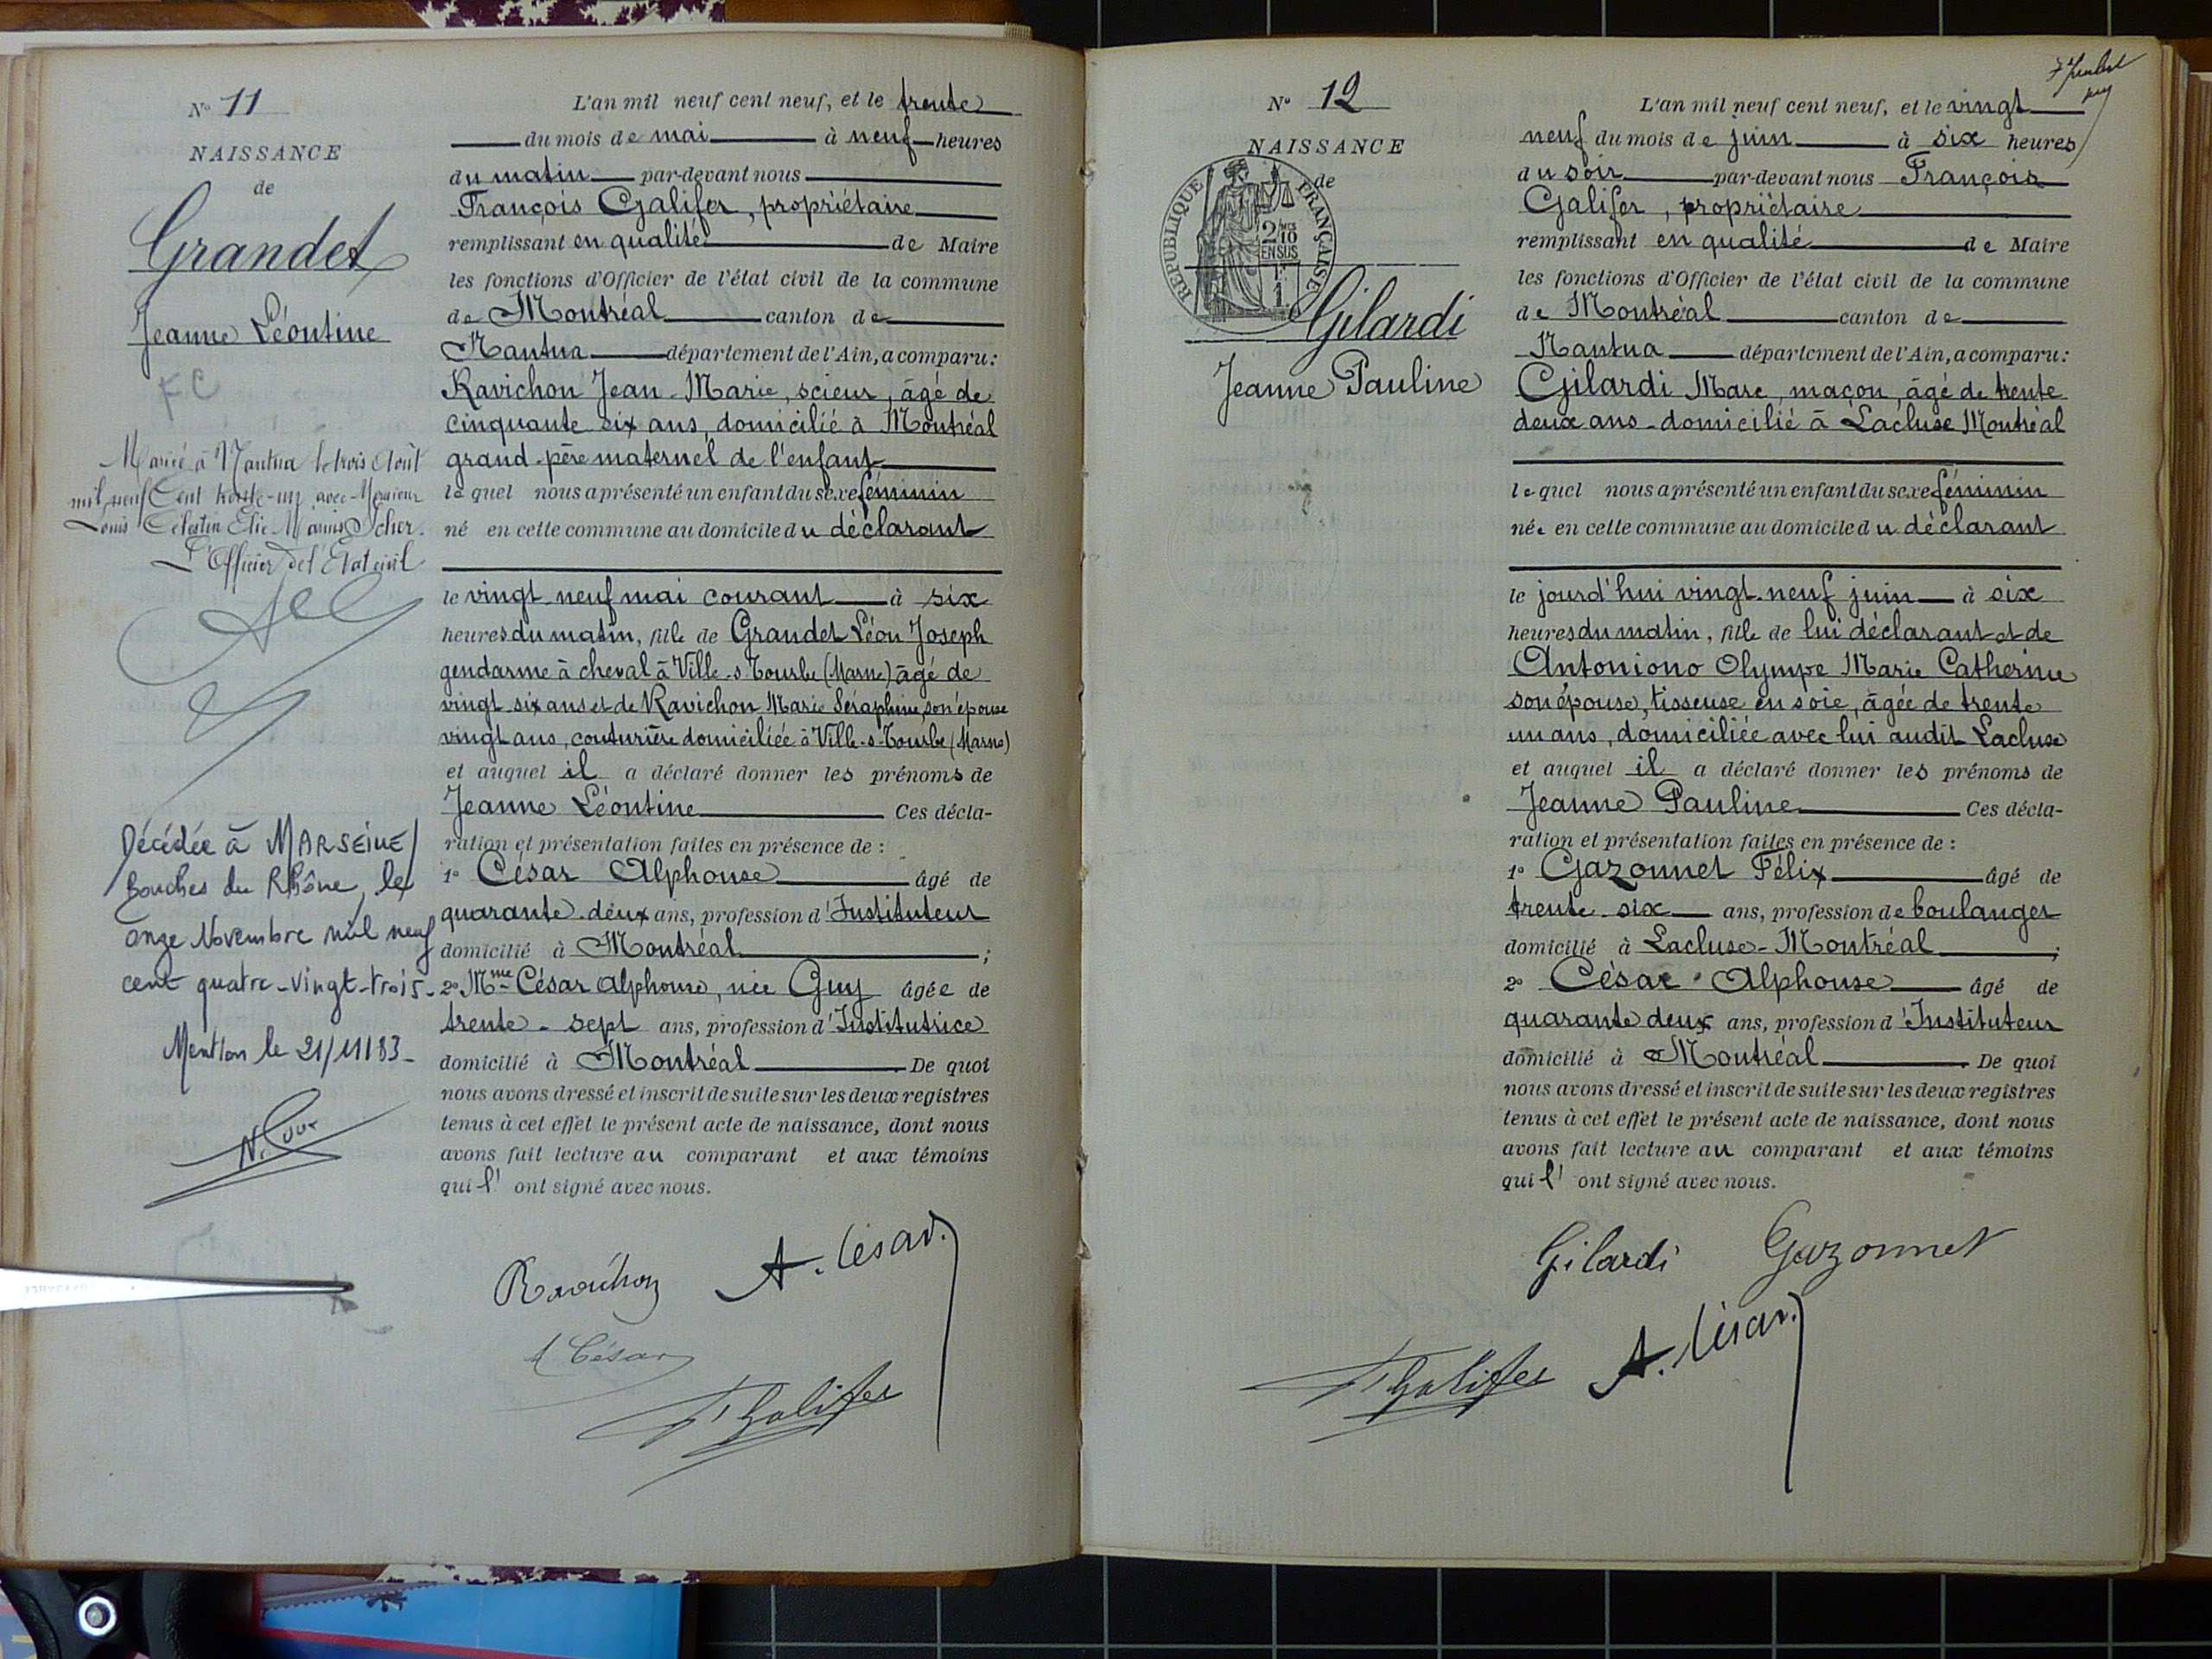 N° 11
NAISSANCE
de
Grandet
Jeanne Léontine
F.C
Marié à Nantua le trois Août
mil neuf Cent trente-un avec Monsieur
Louis Célestin Elie
L'Officier de l'Etat civil
Décédée à MARSEILLE
Bouches du Rhône, le
onze Novembre mil neuf
cent quatre-vingt-trois-
Mention le 21/11/83-
L'an mil neuf cent neuf, et le trente
du mois de mai à neuf heures
du matin par-devant nous
François Galifer, propriétaire
remplissant en qualité de Maire
les fonctions d'Officier de l'état civil de la commune
de Montréal canton de
Nantua département de l'Ain, a comparu:
Ravichon Jean-Marie, scieur, âgé de
cinquante six ans, domicilié à Montréal
grand-père maternel de l'enfant
lequel nous a présenté un enfant du sexe féminin
né en cette commune au domicile du déclarant
le vingt-neuf mai courant à six
heures du matin, fille de Grandet Léon Joseph
gendarme à cheval à Ville-s-Tourbe (Marne) âgé de
vingt six ans et de Ravichon Marie Séraphine, son épouse
vingt ans, couturière domiciliée à Ville-s-Tourbe (Marne)
et auquel il a déclaré donner les prénoms de
Jeanne Léontine Ces décla-
ration et présentation faites en présence de :
1° César Alphonse âgé de
quarante-deux ans, profession d'Instituteur
domicilié à Montréal ;
2° Mme César Alphonse, née Guy âgée de
trente-sept ans, profession d'Institutrice
domicilié à Montréal De quoi
nous avons dressé et inscrit de suite sur les deux registres
tenus à cet effet le présent acte de naissance, dont nous
avons fait lecture au comparant et aux témoins
qui l' ont signé avec nous.
Ravichon A. César
A César
F Galifer
7 Juillet
N° 12
NAISSANCE
de
RÉPUBLIQUE FRANÇAISE
2/10 EN SUS
Gilardi
Jeanne Pauline
L'an mil neuf cent neuf, et le vingt
neuf du mois de juin à six heures
du soir par-devant nous François
Galifer, propriétaire
remplissant en qualité de Maire
les fonctions d'Officier de l'état civil de la commune
de Montréal canton de
Nantua département de l'Ain, a comparu:
Gilardi Marc, maçon, âgé de trente
deux ans domicilié à Lacluse Montréal
lequel nous a présenté un enfant du sexe féminin
née en cette commune au domicile du déclarant
le jourd'hui vingt-neuf juin à six
heures du matin, fille de lui déclarant et de
Antoniono Olympe Marie Catherine
son épouse, tisseuse en soie, âgée de trente
un ans, domiciliée avec lui audit Lacluse
et auquel il a déclaré donner les prénoms de
Jeanne Pauline Ces décla-
ration et présentation faites en présence de :
1° Gazonnet Félix âgé de
trente-six ans, profession de boulanger
domicilié à Lacluse-Montréal ;
2° César Alphonse âgé de
quarante deux ans, profession d'Instituteur
domicilié à Montréal De quoi
nous avons dressé et inscrit de suite sur les deux registres
tenus à cet effet le présent acte de naissance, dont nous
avons fait lecture au comparant et aux témoins
qui l' ont signé avec nous.
Gilardi Gazonnet
F Galifer A. César